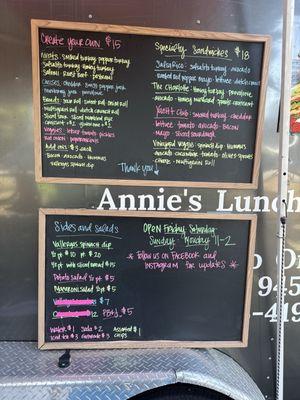 Create Your Own $15
Meats: smoked turkey, pepper turkey,
Salsalito turkey, honey turkey
Salami, roast beef, pastrami
Cheeses: cheddar, smoked pepper jack,
monterey jack, provolone
Breads: sour roll, sweet roll, onion roll
multigrain roll, dutch crunch roll
sliced sour, sliced marbled rye
Veggies: lettuce, tomato, pickles
red onion, pepperoncinis
Add ons: $3 each
Bacon, avocado, hummus
Vallergas spinach dip
Thank You
Specialty Sandwiches $18
Salsalito turkey, avocado
smoked pepper jack, mayo, lettuce, dutch crunch
The Charlotte: honey turkey, provolone
Avocado, honey mustard
Yacht Club: smoked turkey, cheddar
lettuce, tomato, avocado, bacon
Mayo, sliced sourdough
Vineyard Veggie: spinach dip, hummus
avocado, cucumber, tomato, olives, sprouts
multigrain roll
Annie's Lunch
Sides and Salads
Vallergas Spinach dip
½ pt $10 pt $20
½ pt with sliced bread $15
Potato salad ½ pt $5
Macaroni salad ½ pt $5
$7
$12 PB+J $5
Water $1 Soda $2
Iced tea $3 Gatorade $3
Assorted chips $1
Open Friday, Saturday,
Sunday, Monday 11-2
* Follow us on Facebook and
Instagram for updates *
945
-419